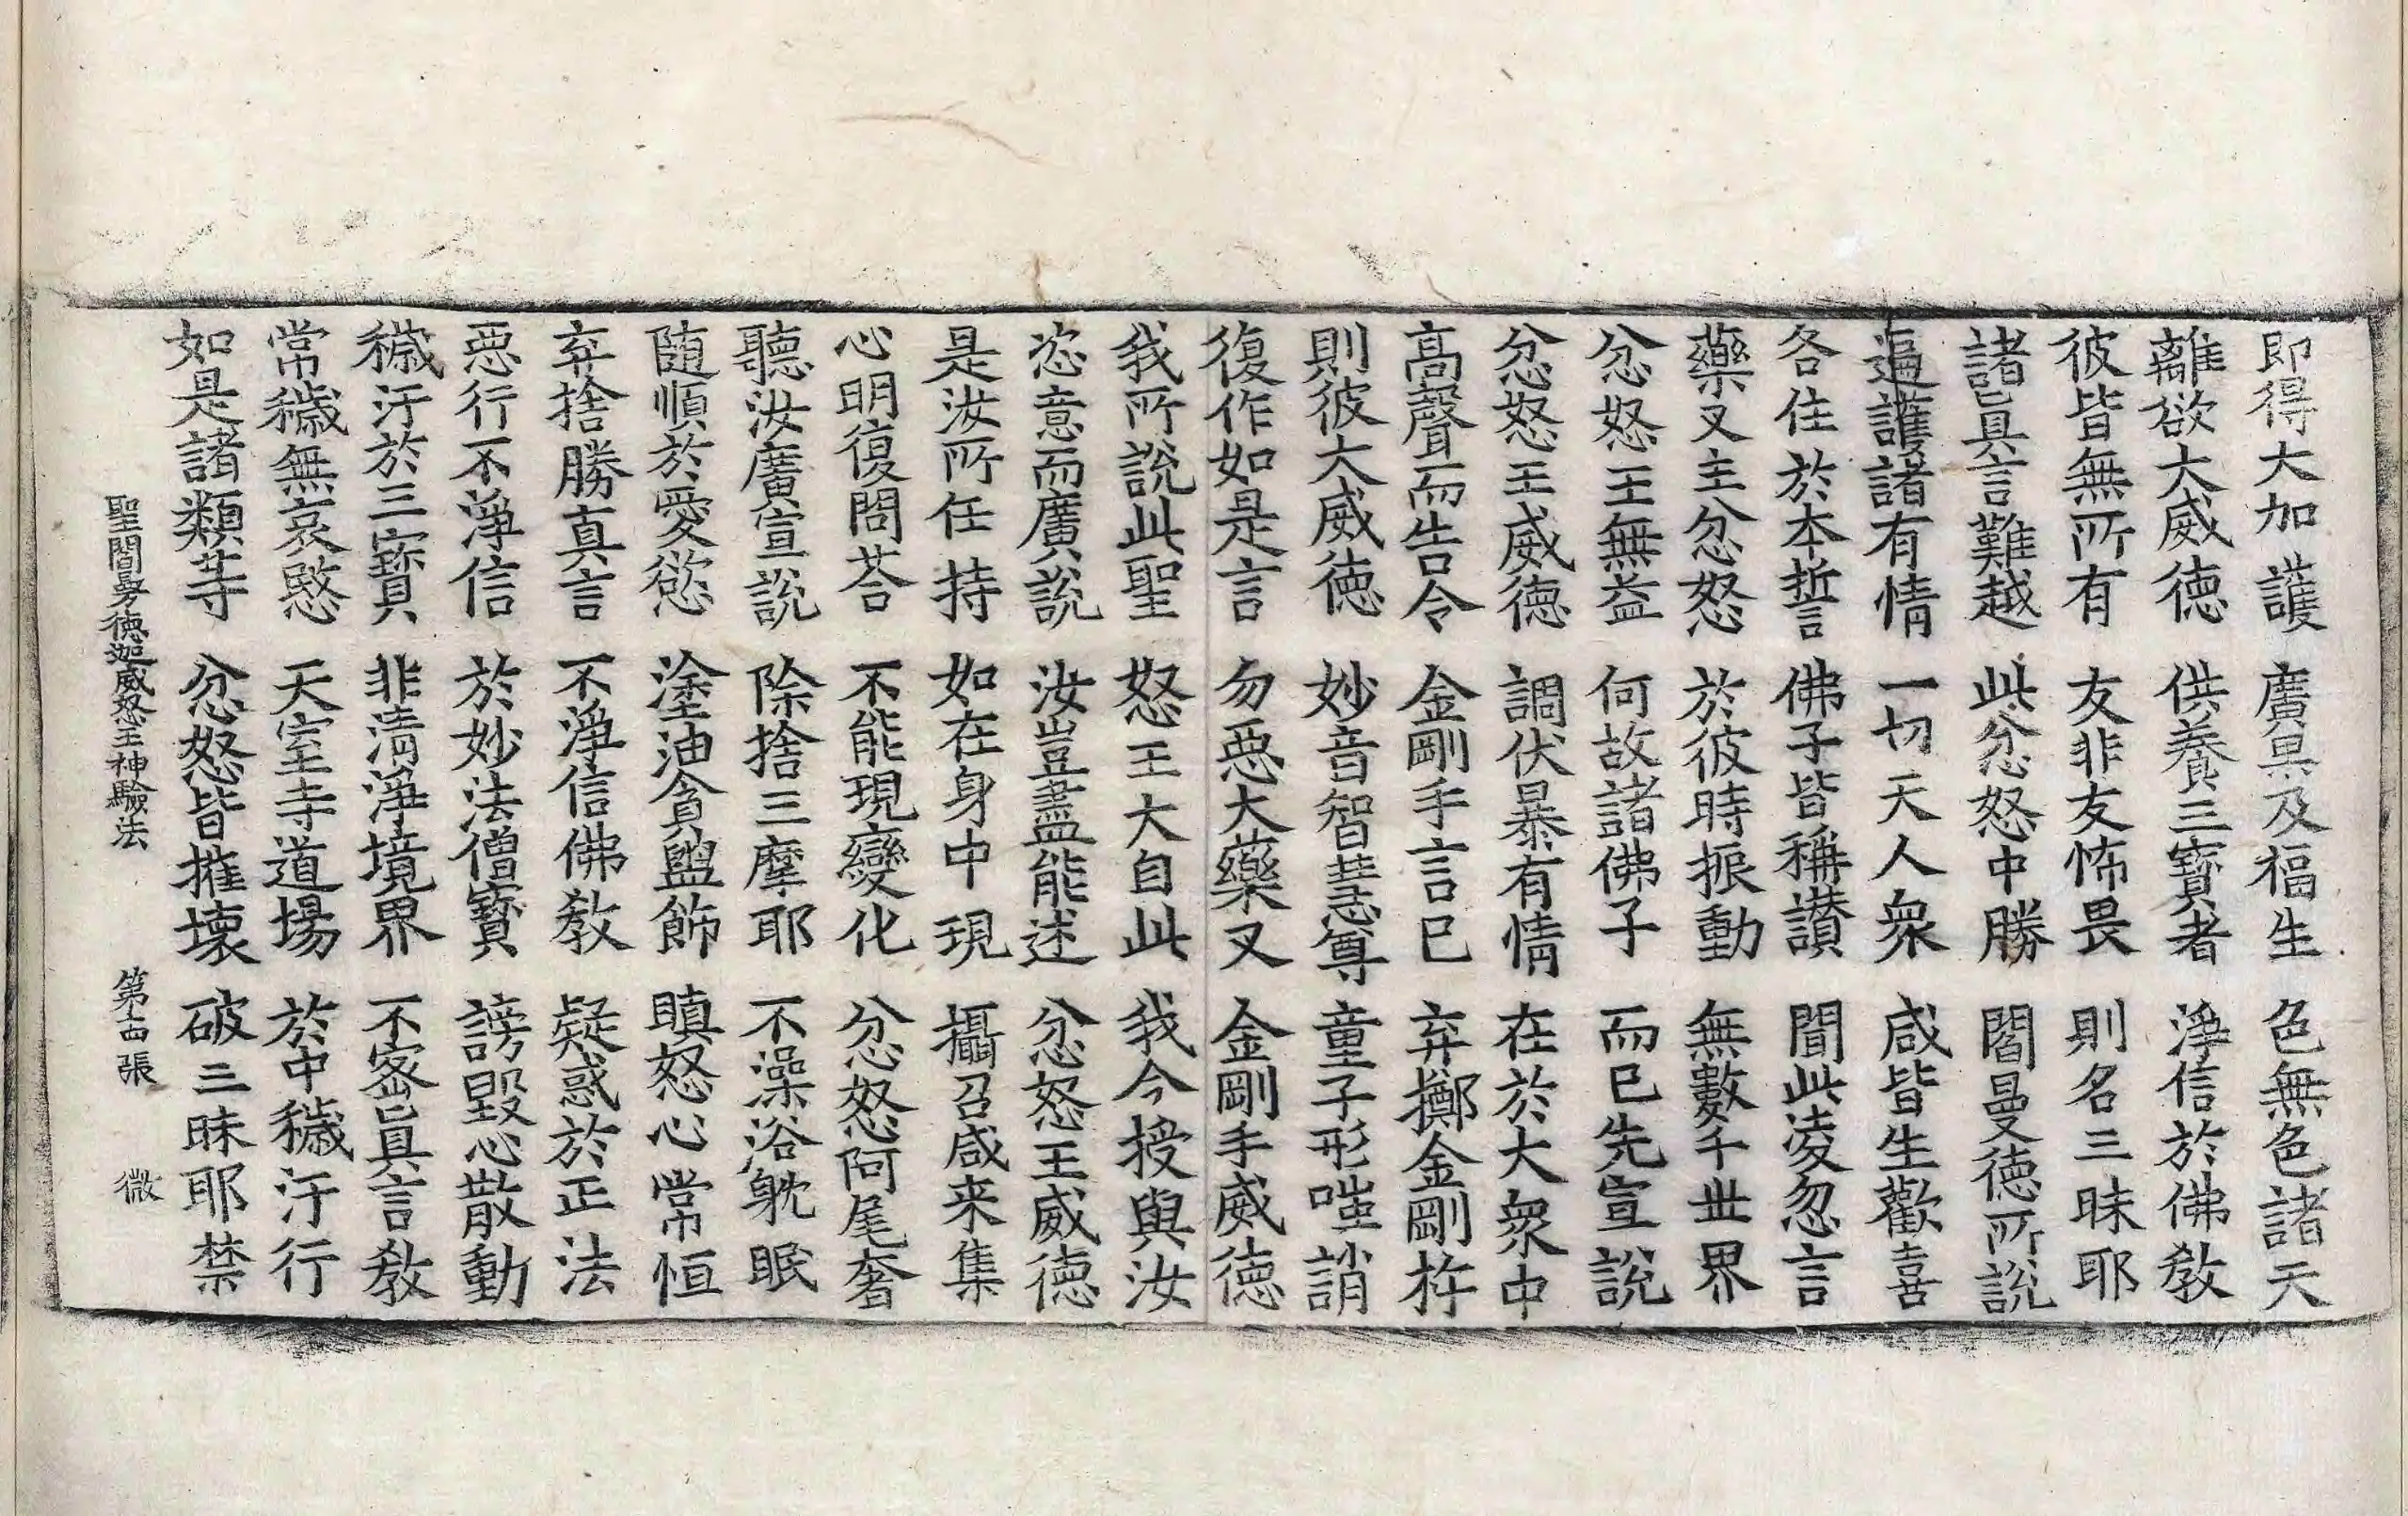 即得大加護　廣果及福生　色無色諸天
離欲大威德　供養三寶者　淨信於佛教
彼皆無所有　友非友怖畏　則名三昧耶
諸真言難越　此忿怒中勝　閻曼德所説
遍護諸有情　一切天人衆　咸皆生歡喜
各住於本誓　佛子皆稱讃　聞此凌忽言
藥叉主忿怒　於彼時振動　無數千世界
忿怒王無益　何故諸佛子　而已先宣説
忿怒王威德　調伏暴有情　在於大衆中
高聲而告令　金剛手言已　弃擲金剛杵
則彼大威德　妙音智慧尊　童子形嗤誚
復作如是言　勿惡大藥叉　金剛手威德
我所説此聖　怒王大自此　我今授與汝
恣意而廣説　汝豈盡能述　忿怒王威德
是汝所任持　如在身中現　攝召咸来集
心明復問荅　不能現變化　忿怒阿尾奢
聽汝廣宣説　除捨三摩耶　不澡浴躭眠
随順於愛慾　塗油貪盥飾　瞋怒心常恒
弃捨勝真言　不淨信佛教　疑惑於正法
惡行不淨信　於妙法僧寶　謗毀心散動
穢汙於三寶　非清淨境界　不密真言教
常穢無哀愍　天室寺道場　於中穢汙行
如是諸類等　忿怒皆摧壞　破三昧耶禁
聖閻曼德迦威怒王神驗法　第十四張　微